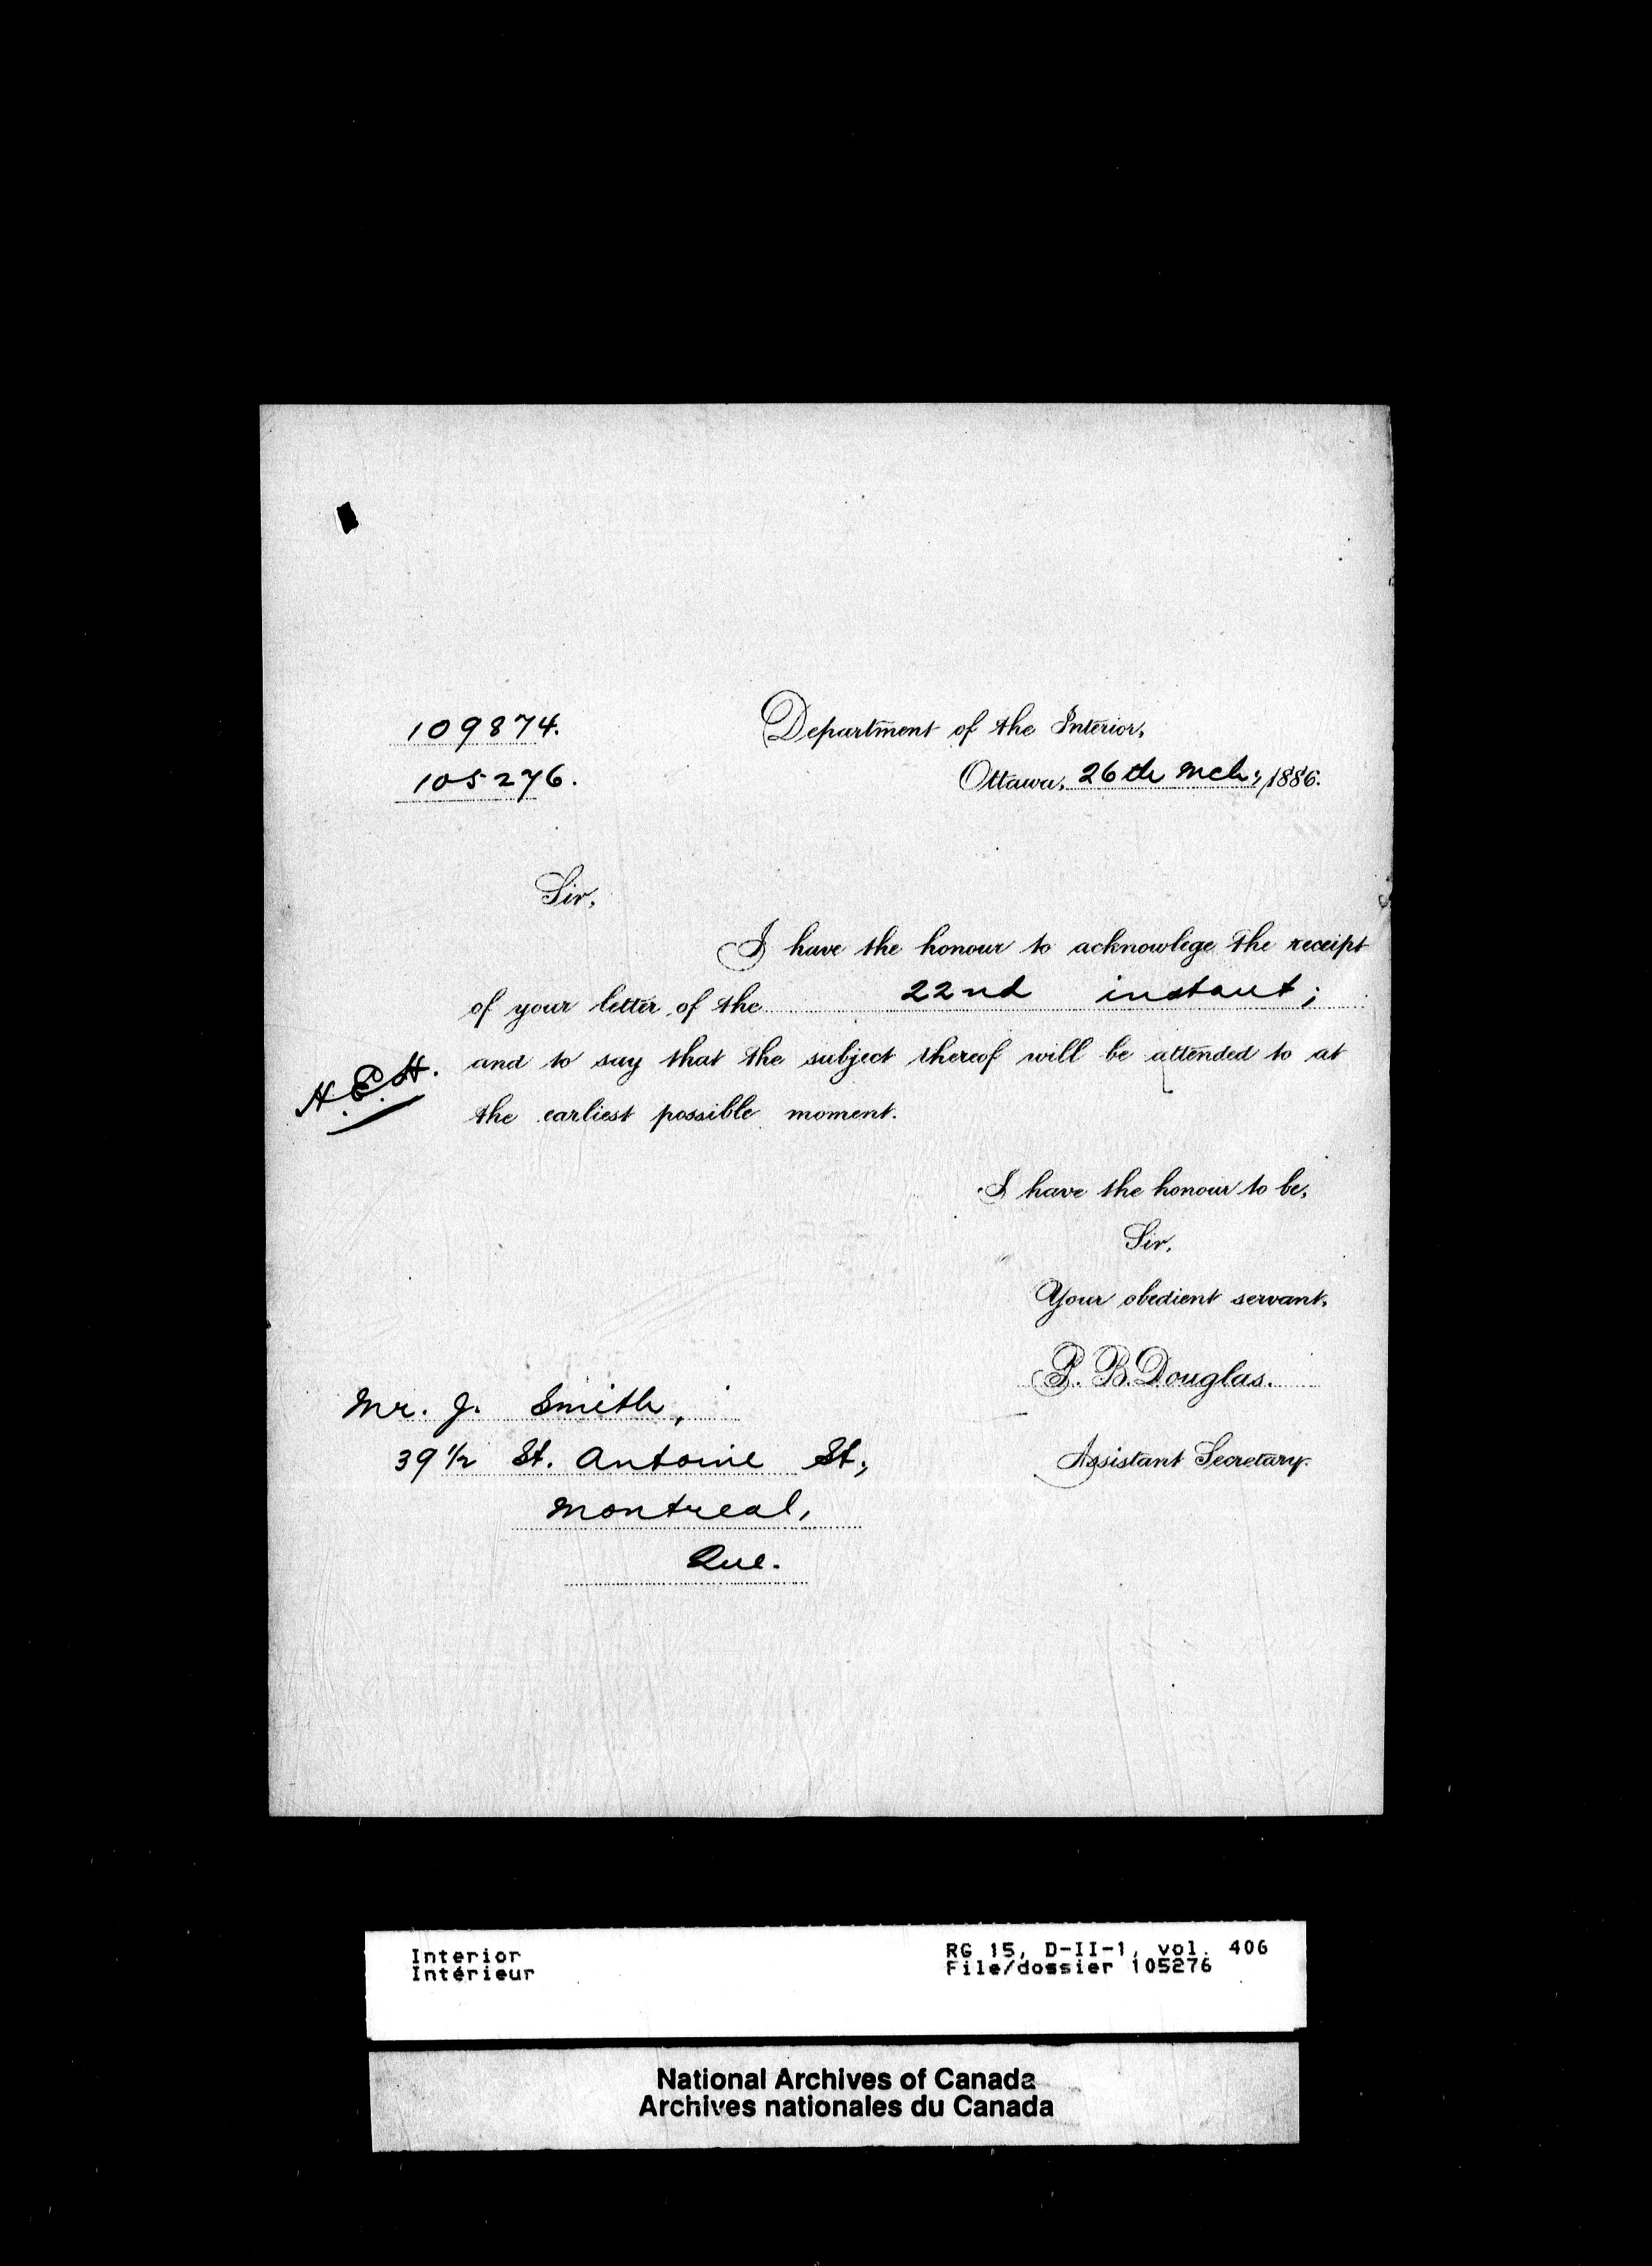 109874.
105276.
Department of the Interior,
Ottawa, 26th Mch, 1886.
Sir,
I have the honour to acknowlege the receipt
of your letter of the 22nd instant;
and to say that the subject thereof will be attended to at
the earliest possible moment.
H.E.H.
I have the honour to be,
Sir,
Your obedient servant,
P. B. Douglas.
Assistant Secretary.
Mr. J. Smith,
39 1/2 St. Antoine St.,
Montreal,
Que.
Interior
Intérieur
RG 15, D-II-1, vol. 406
File/dossier 105276
National Archives of Canada
Archives nationales du Canada